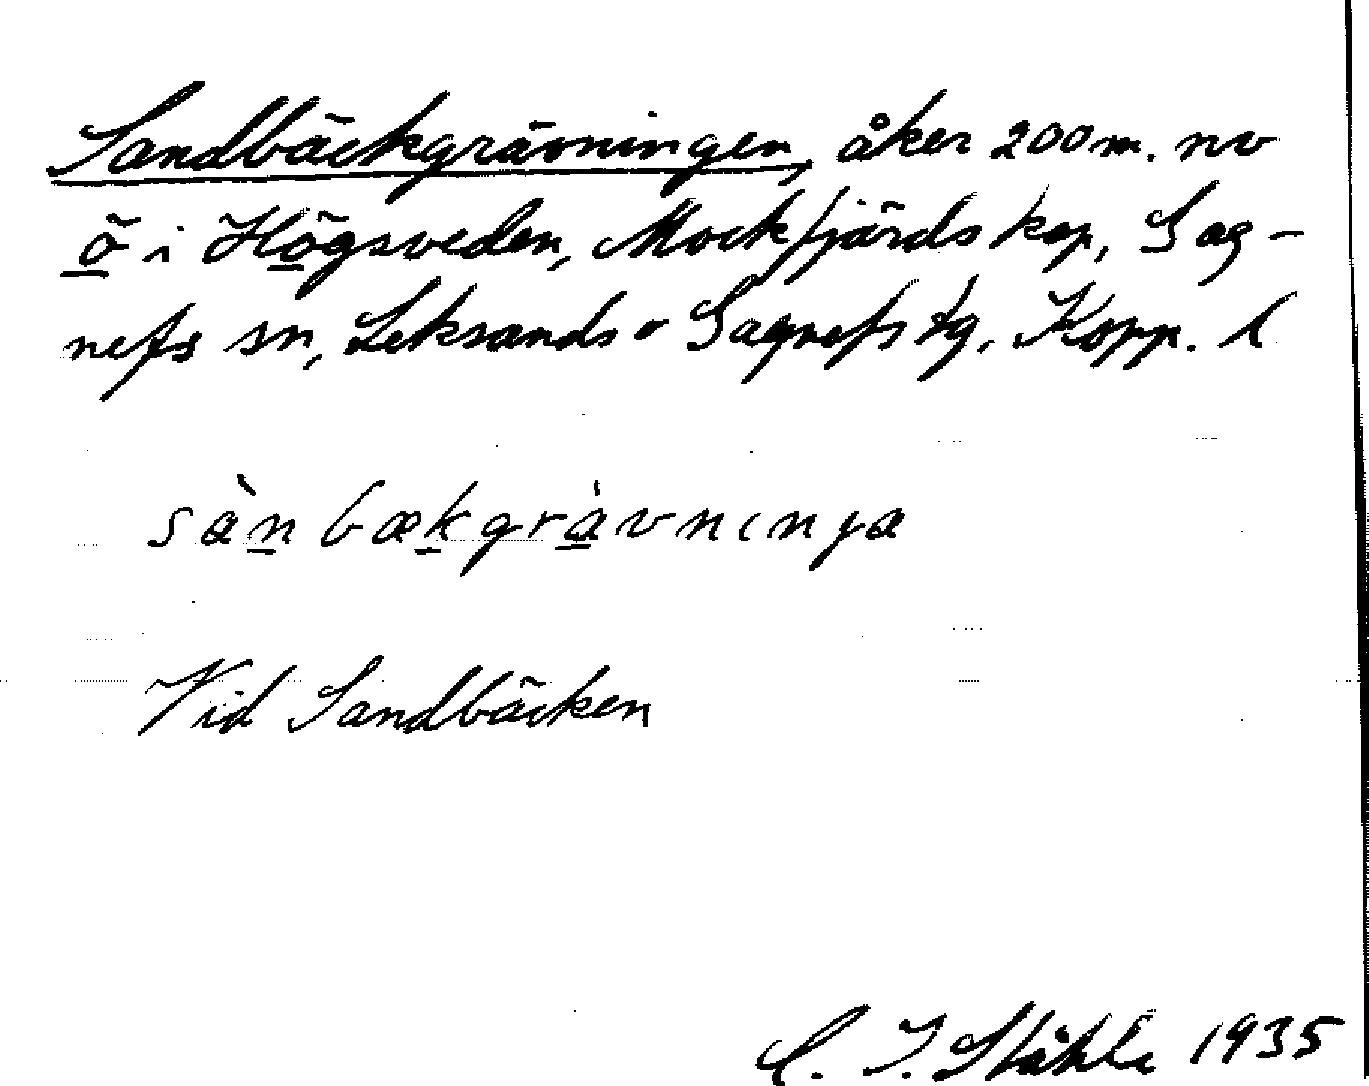 Sandbäckgrävningen, åker 200 m. nv
ö i Högsveden, Mockfjärds kap, Gag-
nefs sn, Leksands o Gagnefs tg, Kopp. l
sànbækgràvnınga
Vid Sandbäcken
C. I. Ståhle 1935